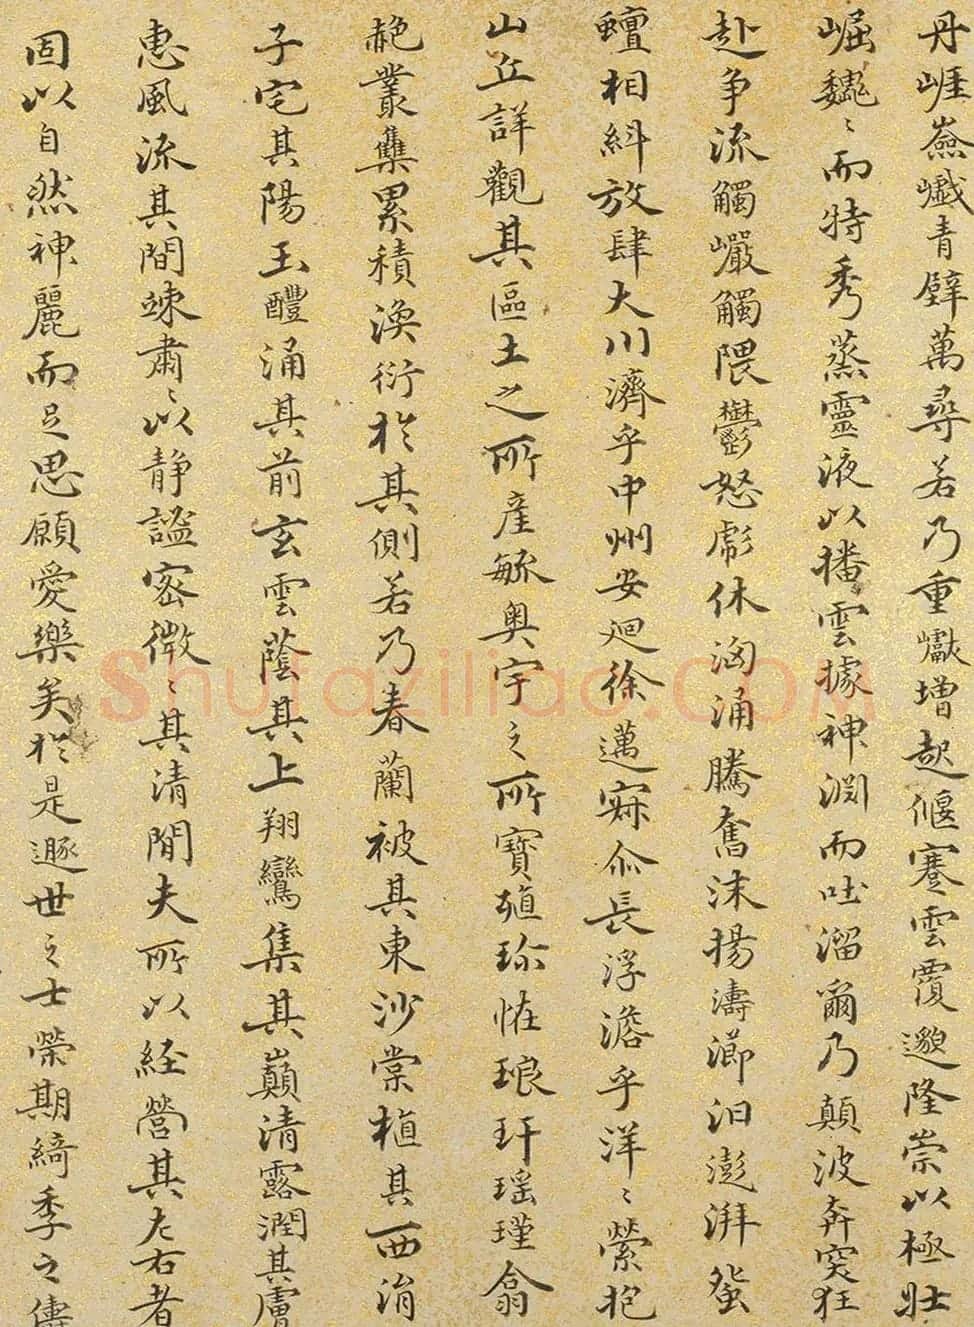 丹崕嶮巇青壁萬尋若乃重巘增起偃蹇雲覆邈隆崇以極壯
崛巍々而特秀蒸靈液以播雲據神淵而吐溜爾乃顛波奔突狂
赴爭流觸巖觸隈鬱怒彪休洶涌騰奮沫揚濤瀄汨澎湃蜿
蟺相糾放肆大川濟乎中州安迴徐邁寂尒長浮澹乎洋々縈抱
山丘詳觀其區土之所產毓奧宇之所寶殖珎恠琅玕瑤瑾翕
赩叢集累積渙衍於其側若乃春蘭被其東沙棠植其西涓
子宅其陽玉醴涌其前玄雲蔭其上翔鸞集其巔清露潤其膚
惠風流其間竦肅々以静謐密微々其清閒夫所以經營其左右者
固以自然神麗而足思願愛樂矣於是遯世之士榮期綺季之儔
Shufaziliao.COM